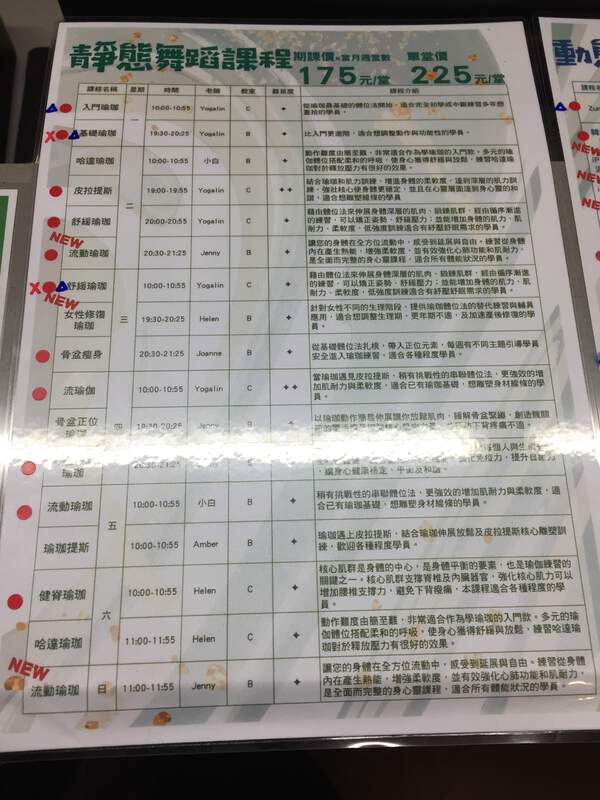 靜態舞蹈課程 期課價×當月週堂數 175元/堂 單堂價 225元/堂
動態
課程名稱 星期 時間 老師 教室 難易度 課程介紹
入門瑜珈 一 10:00-10:55 Yogalin C 從瑜珈最基礎的體位法開始，適合完全初學或中斷練習多年想重拾的學員。
X 基礎瑜珈 19:30-20:25 Yogalin B 比入門更進階，適合想調整動作與功能性的學員。
哈達瑜珈 二 10:00-10:55 小白 B 動作難度由簡至難，非常適合作為學瑜珈的入門款。多元的瑜珈體位搭配柔和的呼吸，使身心獲得舒緩與放鬆，練習哈達瑜珈對於釋放壓力有很好的效果。
皮拉提斯 19:00-19:55 Yogalin C 結合瑜珈和肌力訓練，增進身體的柔軟度，達到深層的肌力訓練，強壯核心使身體更穩定，並且在心靈層面達到身心靈的和諧，適合想雕塑線條的學員
舒緩瑜珈 20:00-20:55 Yogalin C 藉由體位法來伸展身體深層的肌肉、鍛鍊肌群，經由循序漸進的練習，可以矯正姿勢、舒緩壓力；並能增加身體的肌力、肌耐力、柔軟度，低強度訓練適合有紓壓舒眠需求的學員。
NEW 流動瑜珈 20:30-21:25 Jenny B 讓您的身體在全方位流動中，感受到延展與自由。練習從身體內在產生熱能，增強柔軟度，並有效強化心肺功能和肌耐力，是全面而完整的身心靈課程，適合所有體能狀況的學員。
X 舒緩瑜珈 三 10:00-10:55 Yogalin C 藉由體位法來伸展身體深層的肌肉、鍛鍊肌群，經由循序漸進的練習，可以矯正姿勢、舒緩壓力；並能增加身體的肌力、肌耐力、柔軟度，低強度訓練適合有紓壓舒眠需求的學員。
NEW 女性修復瑜珈 19:30-20:25 Helen B 針對女性不同的生理階段，提供瑜珈體位法的替代練習與輔具應用，適合想調整生理期、更年期不適，及加速產後修復的學員。
骨盆瘦身 20:30-21:25 Joanne B 從基礎體位法扎根，帶入正位元素，每週有不同主題引導學員安全進入瑜珈練習，適合各種程度學員。
流瑜伽 四 10:00-10:55 Yogalin C 當瑜珈遇見皮拉提斯，稍有挑戰性的串聯體位法，更強效的增加肌耐力與柔軟度，適合已有瑜珈基礎，想雕塑身材線條的學員。
骨盆正位瑜珈 19:30-20:25 Jenny B 以瑜珈動作簡易伸展讓你放鬆肌肉，緩解骨盆緊繃，
瑜珈 20:30-21:25 B 強化免疫力，提升自癒力，讓身心健康穩定、平衡及和諧。
流動瑜珈 五 10:00-10:55 小白 B 稍有挑戰性的串聯體位法，更強效的增加肌耐力與柔軟度，適合已有瑜珈基礎，想雕塑身材線條的學員。
瑜珈提斯 10:00-10:55 Amber B 瑜珈遇上皮拉提斯，結合瑜珈伸展放鬆及皮拉提斯核心雕塑訓練，歡迎各種程度學員。
健脊瑜珈 六 10:00-10:55 Helen C 核心肌群是身體的中心，是身體平衡的要素，也是瑜伽練習的關鍵之一。核心肌群支撐脊椎及內臟器官，強化核心肌力可以增加腰椎支撐力，避免下背痠痛，本課程適合各種程度的學員。
哈達瑜珈 11:00-11:55 Helen C 動作難度由簡至難，非常適合作為學瑜珈的入門款。多元的瑜伽體位搭配柔和的呼吸，使身心獲得舒緩與放鬆，練習哈達瑜珈對於釋放壓力有很好的效果。
NEW 流動瑜珈 日 11:00-11:55 Jenny B 讓您的身體在全方位流動中，感受到延展與自由。練習從身體內在產生熱能，增強柔軟度，並有效強化心肺功能和肌耐力，是全面而完整的身心靈課程，適合所有體能狀況的學員。